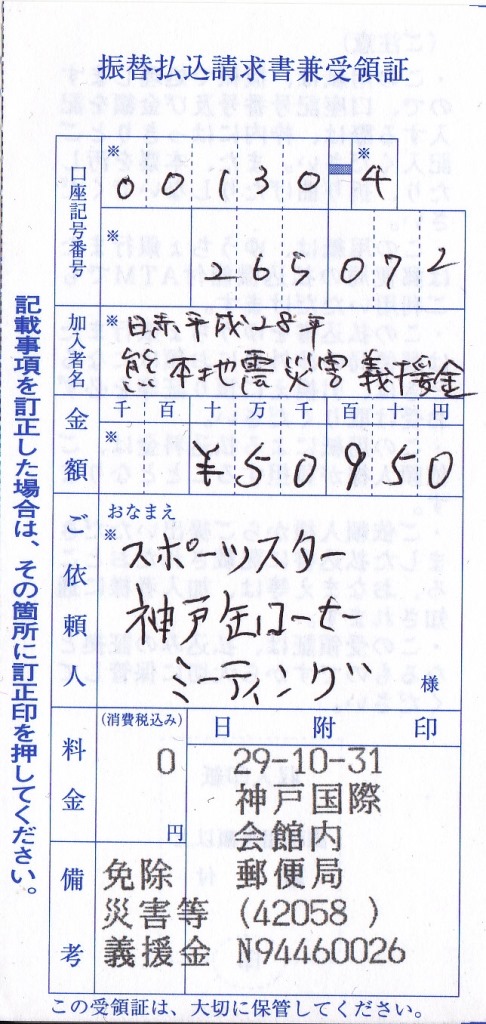 振替払込請求書兼受領証
口座記号番号
※
00130
※
4
※
265072
加入者名
※
日赤平成28年
熊本地震災害義援金
金額
千百十万千百十円
※
¥50950
ご依頼人
おなまえ
※
スポーツスター
神戸缶コーナー
ミーティング
様
料金
(消費税込み)
0
円
日附印
29-10-31
神戸国際
会館内
郵便局
(42058 )
N94460026
備考
免除
災害等
義援金
記載事項を訂正した場合は、その箇所に訂正印を押してください。
この受領証は、大切に保管してください。